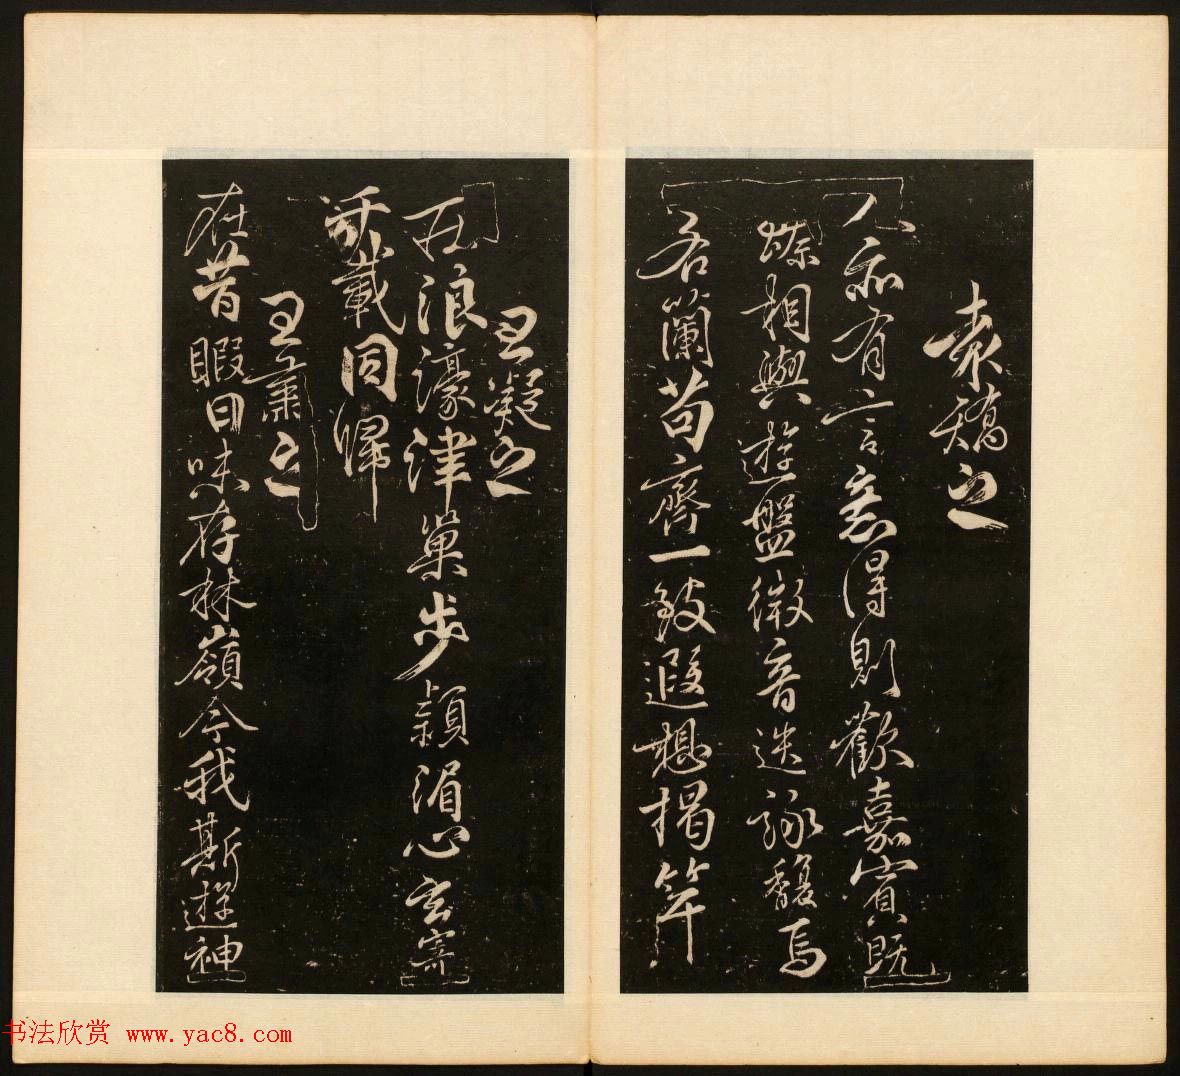 袁嶠之
人亦有言意得則歡嘉賓既
臻相與遊盤微音迭詠馥焉
若蘭苟齊一致遐想揭竿
王凝之
在浪濠津巢步潁湄冥心玄寄
千載同歸
王肅之
在昔暇日味存林嶺今我斯遊神
书法欣赏 www.yac8.com